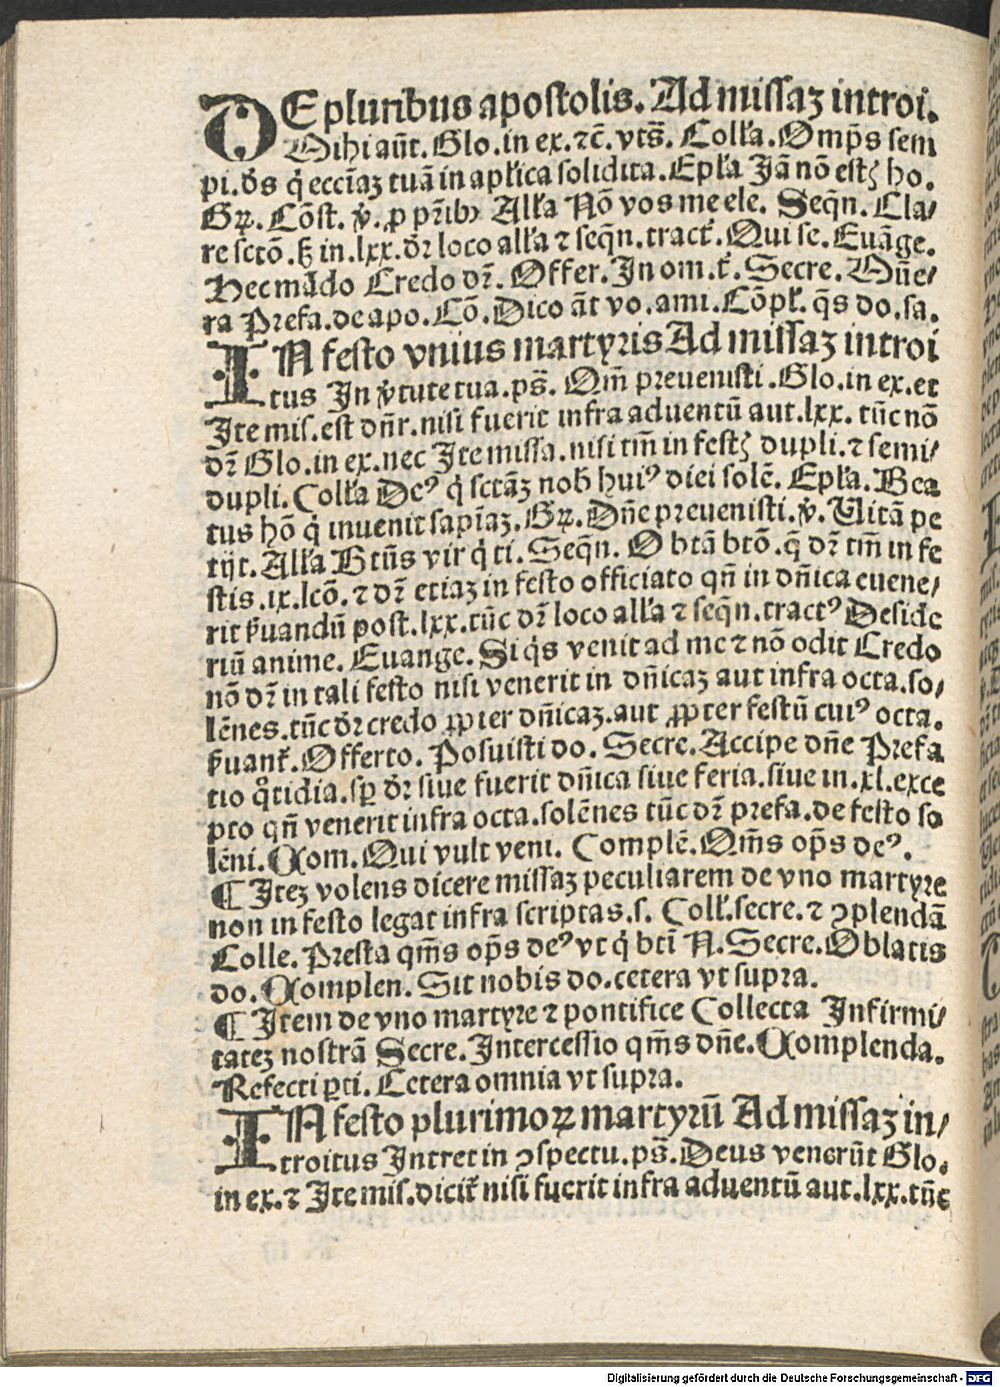 DE pluribus apostolis. Ad missaꝫ introi.
Mihi aūt. Glo. in ex. ⁊c̄. vts̄. Coll̓a. Omp̄s sem
pi. d̓s q̇ eccīaꝫ tuā in apl̓ica solidita. Epl̓a Jā nō estꝭ ho.
Gꝝ. Cōst. v̓. ꝓ pr̄ibꝰ All̓a Nō vos me ele. Seqn̄. Cla⸗
re sctō. ẞ in. lxx. d̓r loco all̓a ⁊ seqn̄. tract̓. Qui se. Euāge.
Hec mādo Credo dr̄. Offer. In om. t̓. Secre. Mūe⸗
ra Prefa. de apo. Cō. Dico āt vo. ami. Cōpl̓. qs̄ do. sa.
IN festo vnius martyris Ad missaꝫ introi
tus In v̓tute tua. ps̄. Qm̄ preuenisti. Glo. in ex. et
Ite mis. est dn̄r. nisi fuerit infra aduentū aut. lxx. tūc nō
dr̄ Glo. in ex. nec Ite missa. nisi tm̄ in festꝭ dupli. ⁊ semi⸗
dupli. Coll̓a Deꝰ q̇ sctāꝫ nob̄ huiꝰ diei solē. Epl̓a. Bea
tus hō q̇ inuenit sapīaꝫ. Gꝝ. Dn̄e preuenisti. v̓. Uitā pe
tijt. All̓a Btūs vir q̇ ti. Seqn̄. O btā btō. q̄ dr̄ tm̄ in fe
stis. ix. lcō. ⁊ dr̄ etiaꝫ in festo officiato qn̄ in dn̄ica euene⸗
rit ẜuandū post. lxx. tūc dr̄ loco all̓a ⁊ seqn̄. tractꝰ Deside
riū anime. Euange. Si q̇s venit ad me ⁊ nō odit Credo
nō dr̄ in tali festo nisi venerit in dn̄icaꝫ aut infra octa. so⸗
lēnes. tūc d̓r credo ꝓpter dn̄icaꝫ. aut ꝓpter festū cuiꝰ octa.
ẜuant̓. Offerto. Posuisti do. Secre. Accipe dn̄e Prefa
tio qͦtidia. sꝑ d̓r siue fuerit dn̄ica siue feria. siue in. xl. exce
pto qn̄ venerit infra octa. solēnes tūc dr̄ prefa. de festo so
lēni. Com. Qui vult veni. Complē. Om̄s op̄s deꝰ.
¶ Iteꝫ volens dicere missaꝫ peculiarem de vno martyre
non in festo legat infra scriptas. s. Coll̓. secre. ⁊ ꝯplendā
Colle. Presta qm̄s op̄s deꝰ vt q̇ bti̅ N. Secre. Oblatis
do. Complen. Sit nobis do. cetera vt supra.
¶ Item de vno martyre ⁊ pontifice Collecta Infirmi⸗
tateꝫ nostrā Secre. Intercessio qm̄s dn̄e. Complenda.
Refecti ꝑti. Cetera omnia vt supra.
IN festo plurimoꝝ martyrū Ad missaꝫ in⸗
troitus Intret in ꝯspectu. ps̄. Deus venerūt Glo.
in ex. ⁊ Ite mis̄. dicit̓ nisi fuerit infra aduentū aut. lxx. tūc
Digitalisierung gefördert durch die Deutsche Forschungsgemeinschaft - DFG